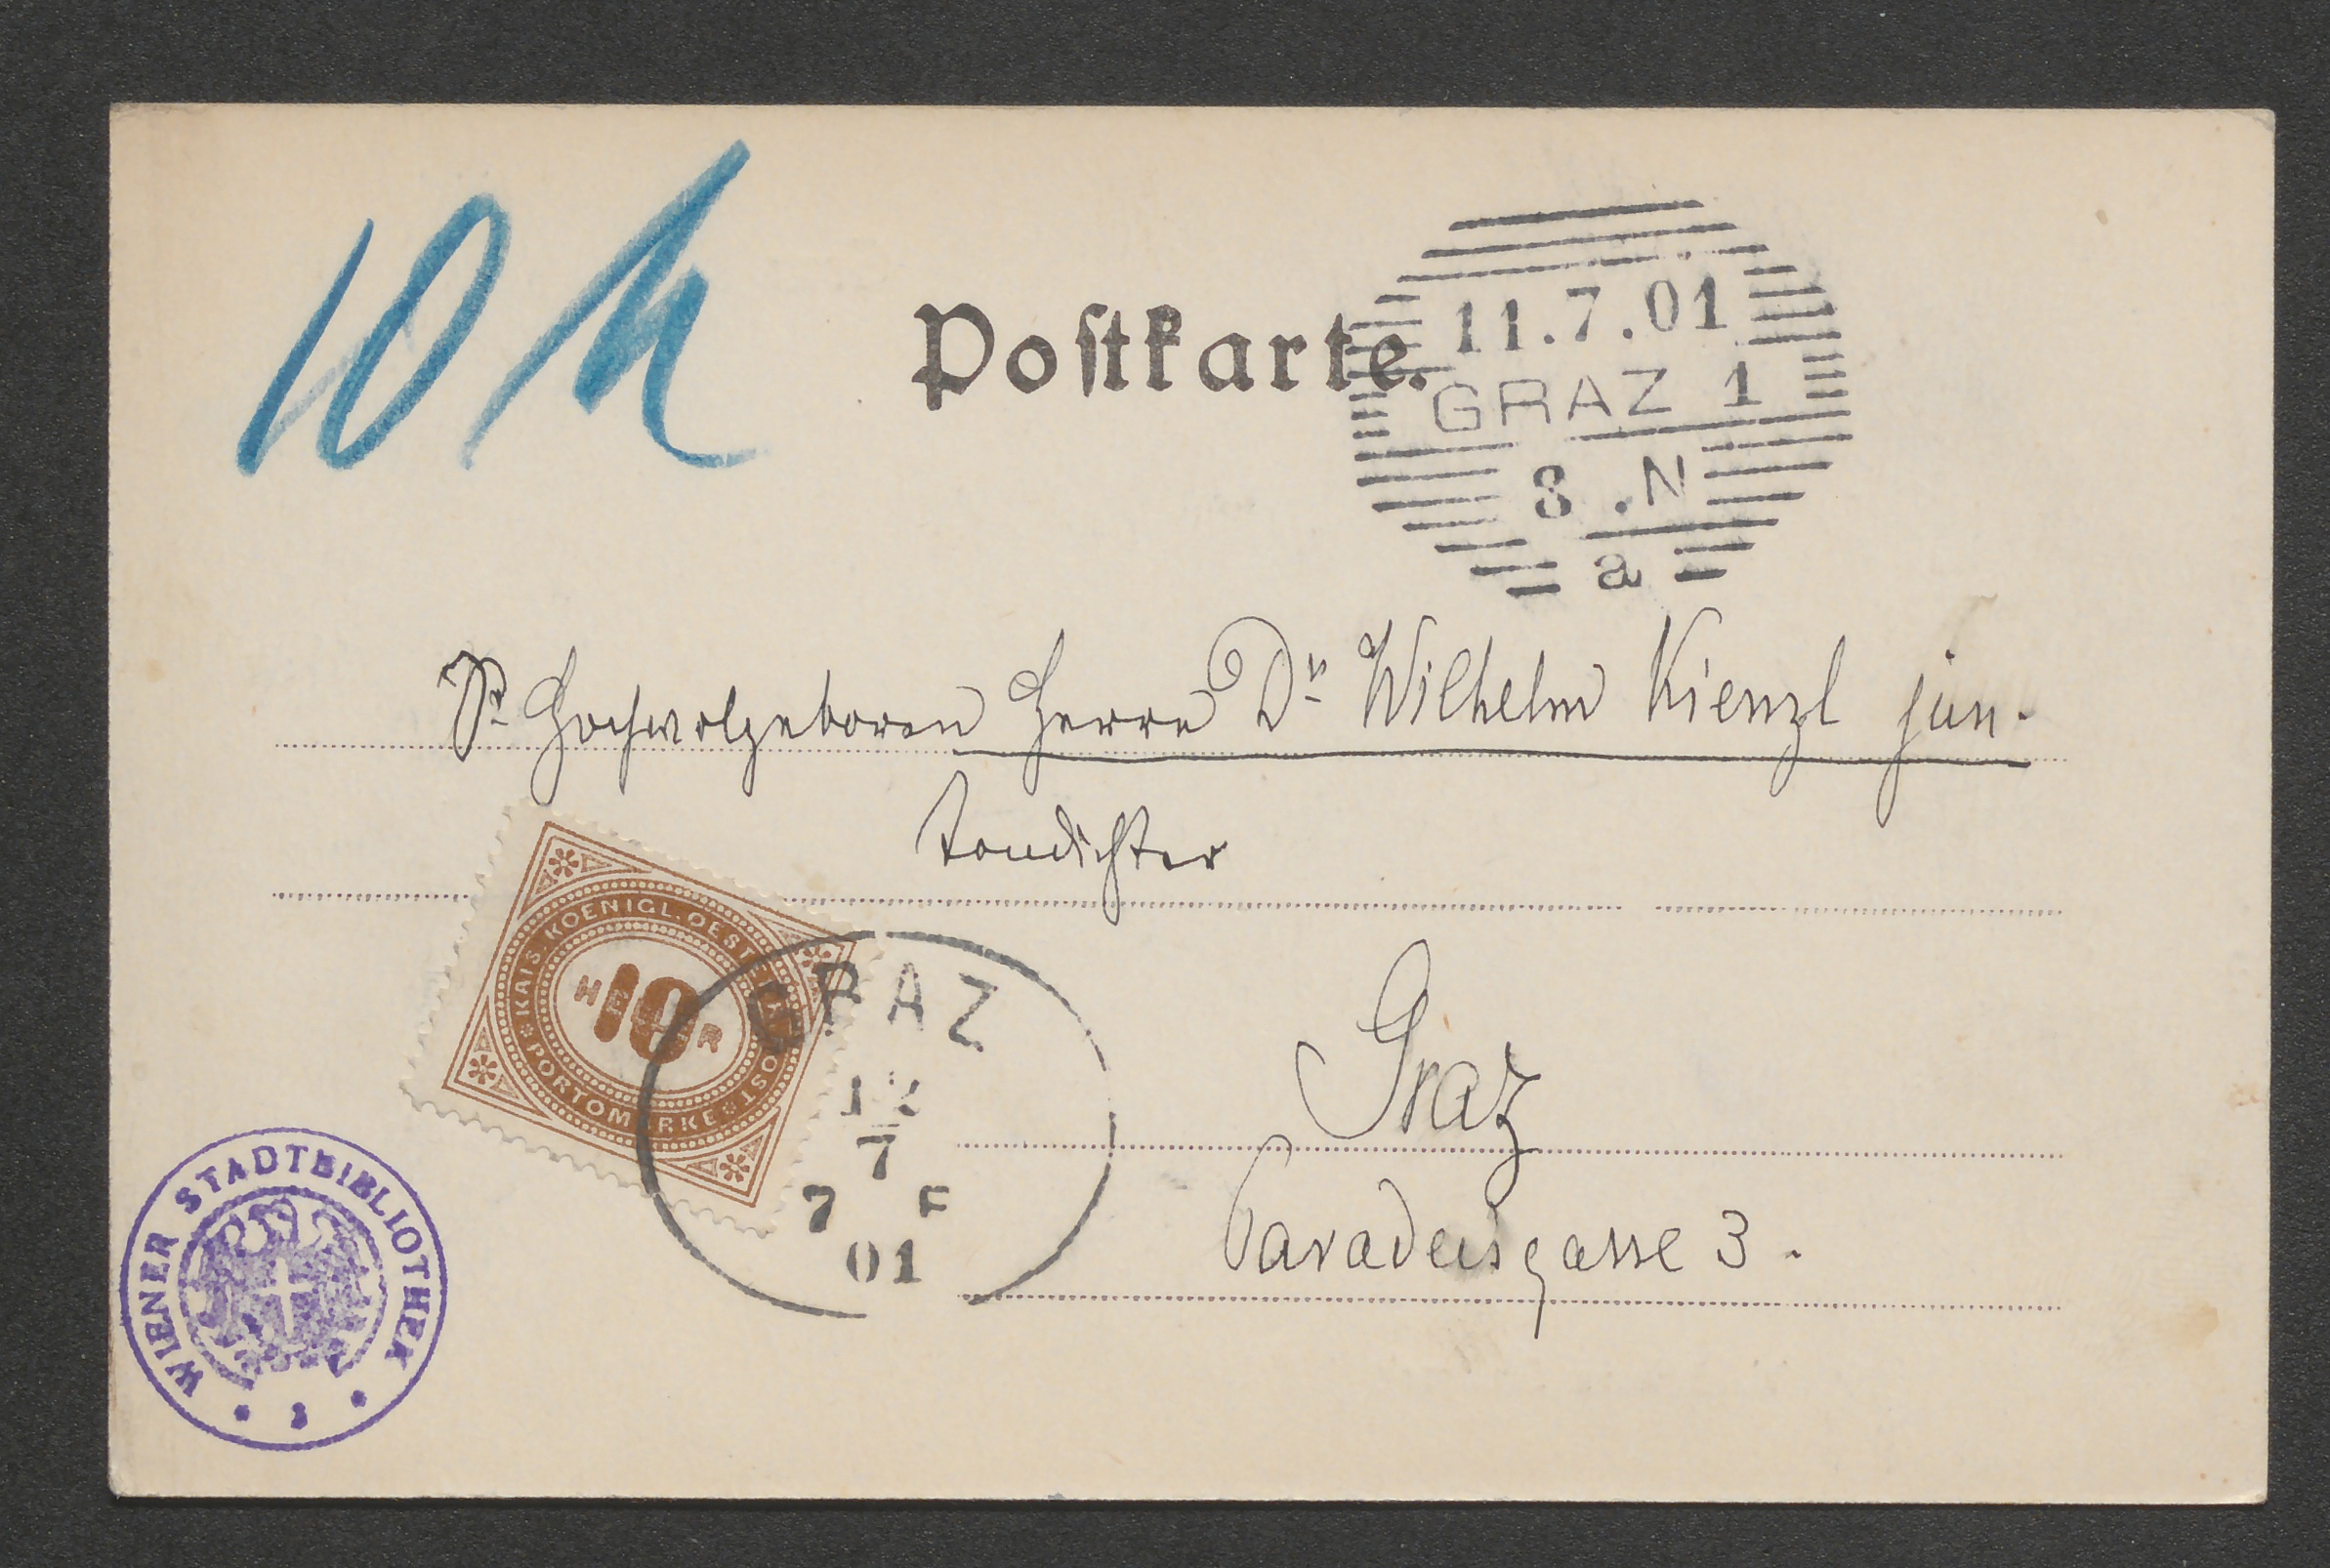 10 h
Postkarte.
11.7.01
GRAZ 1
8 .N
a
Sr. Hochwolgeboren Herrn Dr. Wilhelm Kienzl jun.
Tondichter
KAIS. KOENIGL. OESTERR. POST
10
HELLER
PORTOMARKE
GRAZ
12
7
7 F
01
Graz
Paradeisgasse 3.
WIENER STADTBIBLIOTHEK